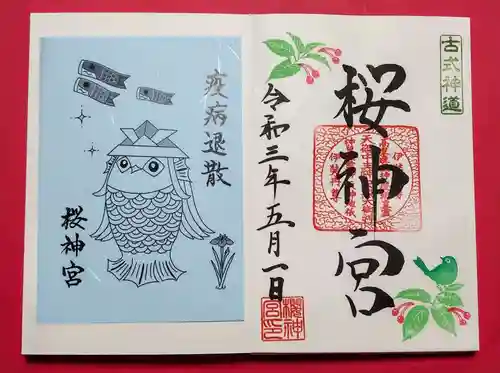 古式神道
桜神宮
令和三年五月一日
櫻神宮印
疫病退散
桜神宮